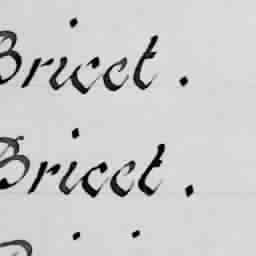 Bricet.
Bricet.